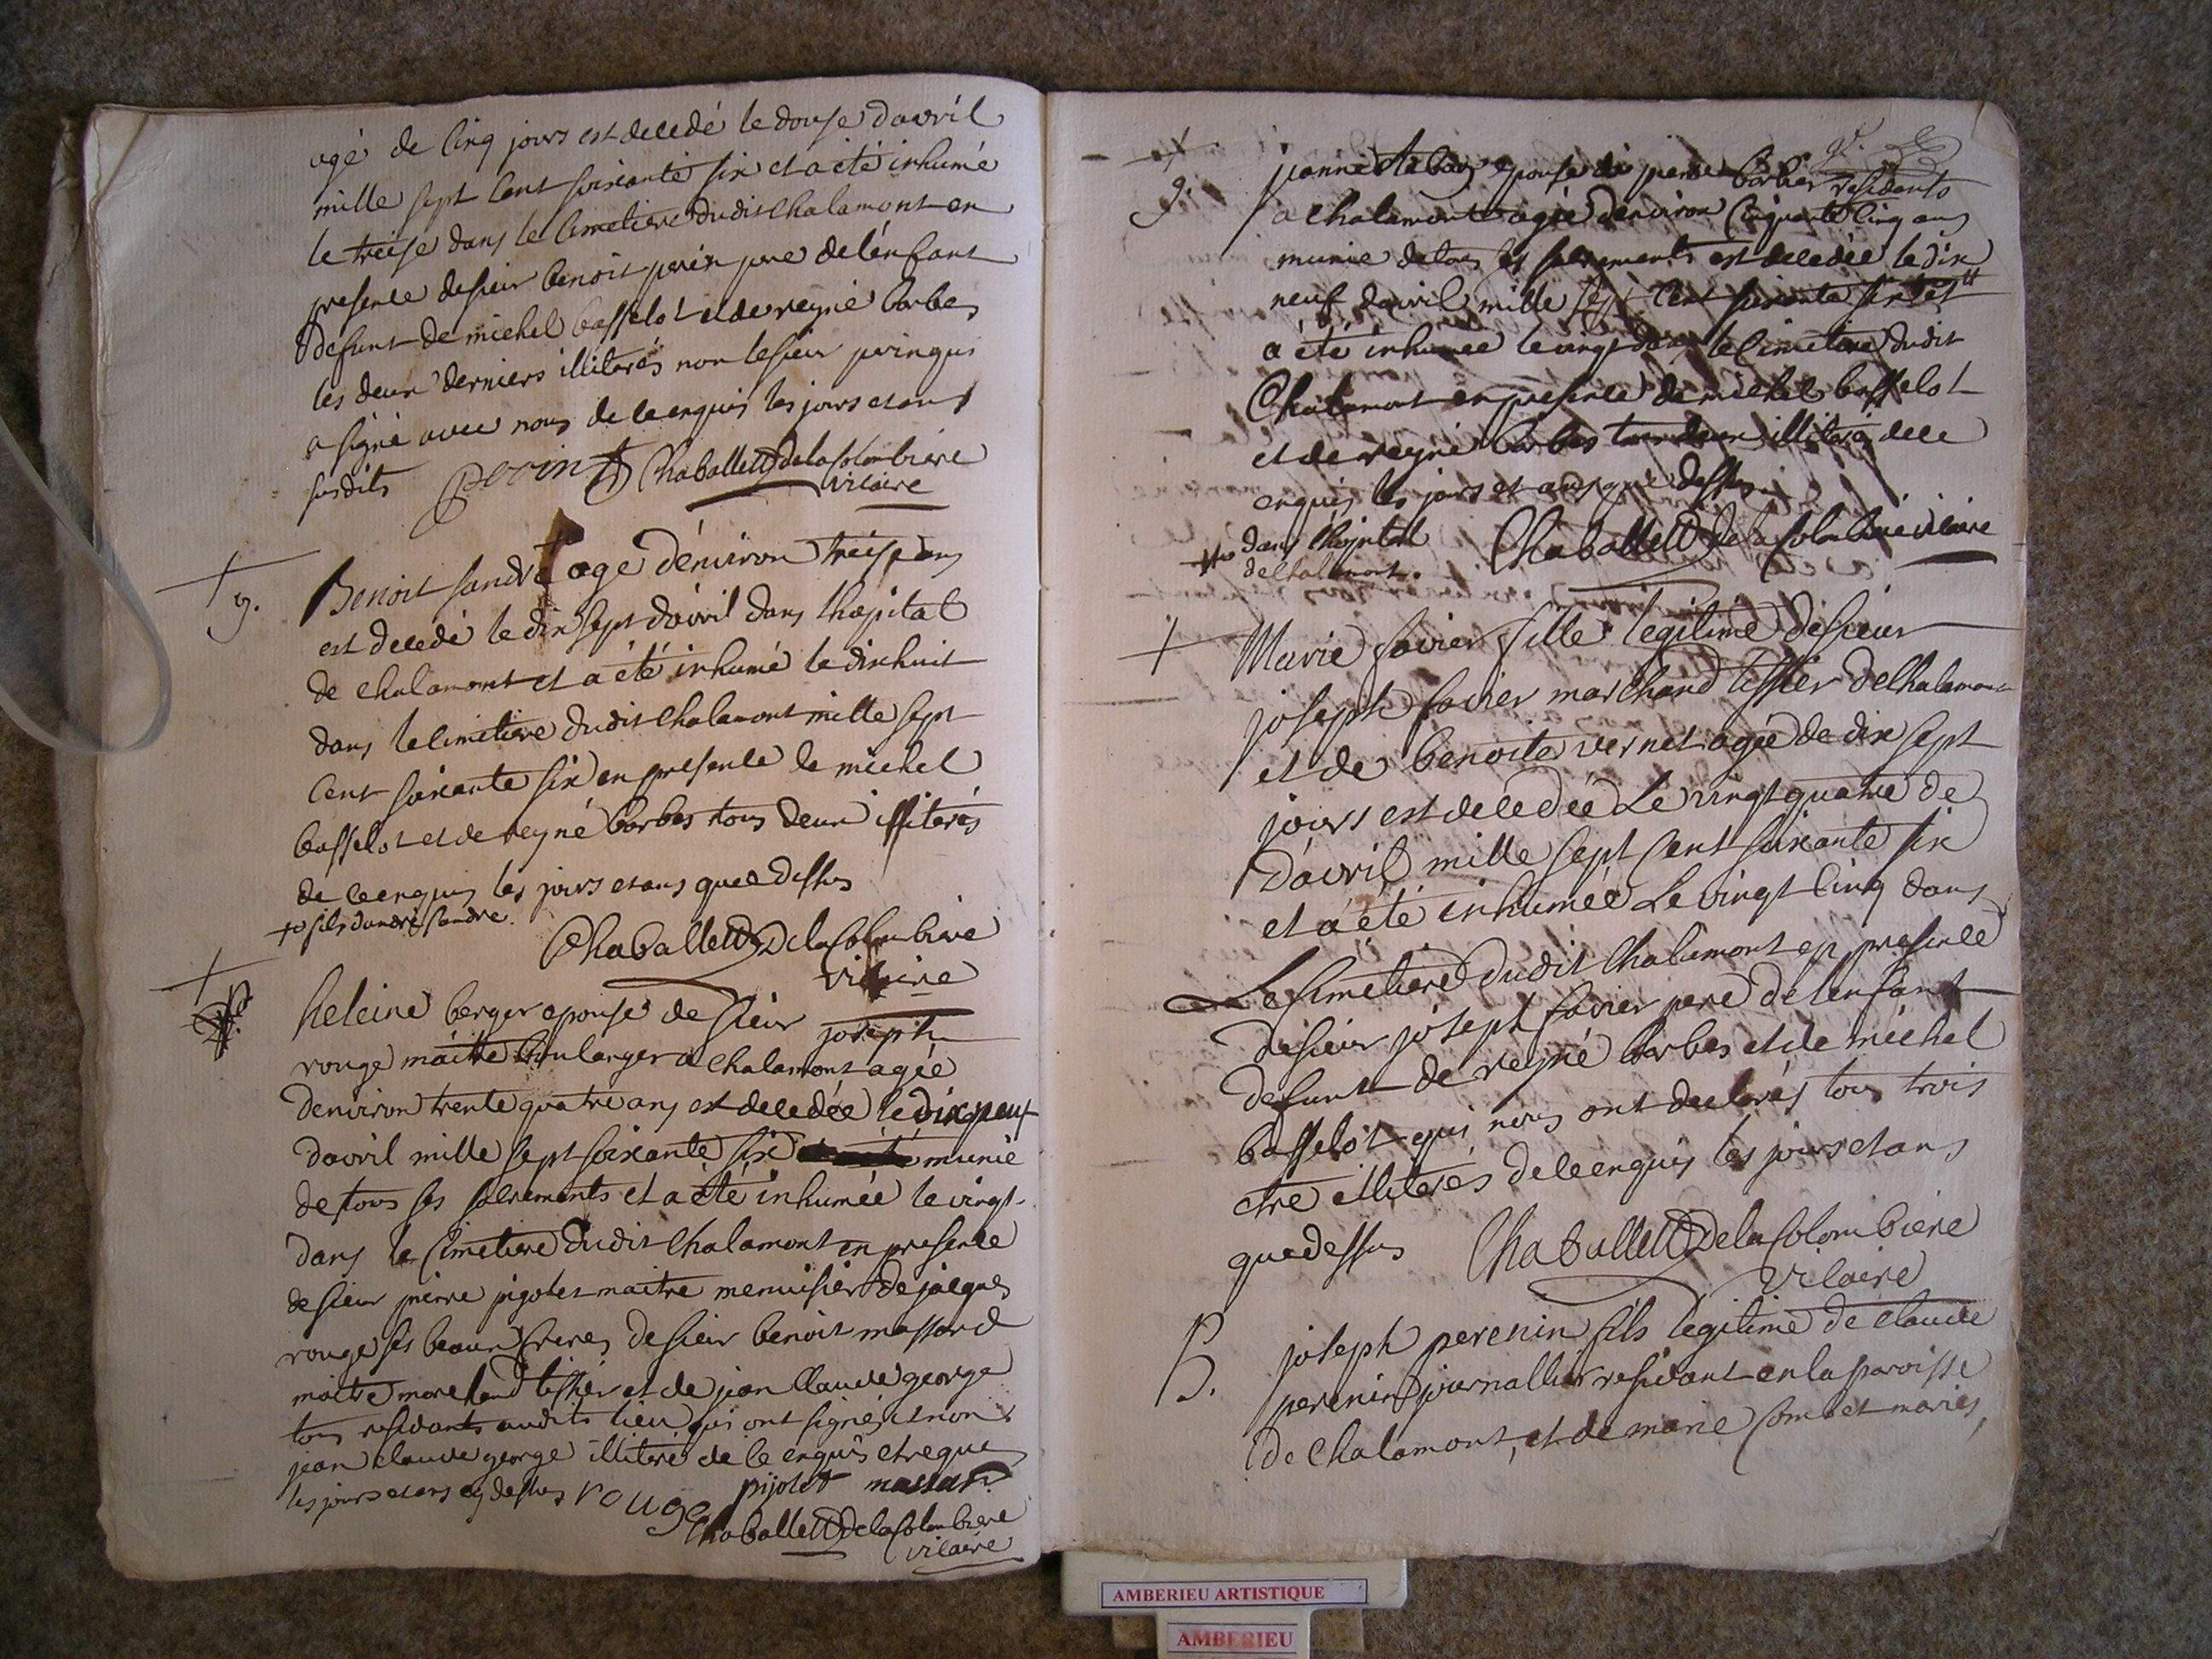 agé de cinq jours est decedé le douse davril
mille sept cent soixante six et a été inhumé
le treise dans le cimetiere dudit chalamont en
presence de sieur benoit perin pere de lenfant
defunt de michel basselot et de reyné barbas
les deux derniers illiterés non le sieur perin qui
a signé avec nous de ce enquis les jours et ans
susdits perin Chaballett de la Colombiere
vicaire
g. Benoit sandre agé denviron treise ans
est decedé le dix sept davril dans lhopital
de chalamont et a été inhumé le dix huit
dans le cimetiere dudit chalamont mille sept
cent soixante six en presence de michel
basselot et de reyné barbas tous deux illiterés
de ce enquis les jours et ans que dessus
fils dandré sandre.
Chaballett de la Colombiere
vicaire
heleine berger epouse de sieur joseph
rouge maitre boulanger a chalamont agée
denviron trente quatre ans est decedée le dix neuf
davril mille sept soixante six munie
de tous ses sacrements et a été inhumée le vingt
dans le cimetiere dudit chalamont en presence
de sieur pierre pigolet maitre menuisier de jacques
rouge ses beaux freres de sieur benoit massard
maitre marchand tissier et de jean claude george
tous residants audits lieu qui ont signés et non
jean claude george illiteré de ce enquis et requis
les jours et ans cy dessus rouge pijolet massard
Chaballett de la Colombiere
vicaire
g. jeanne epouse de pierre barbier residents
a chalamont agée denviron cinquante cinq ans
munie de tous ses sacrements est decedée le dix
neuf davril mille sept cent soixante six et
a été inhumée le vingt dans le cimetiere dudit
Chalamont en presence de michel basselot
et de reyné barbas tous deux illiterés de ce
enquis les jours et ans que dessus
dans lhopital Chaballett de la Colombiere vicaire
de chalamont.
Marie favier fille legitime de sieur
joseph favier marchand tissier de chalamont
et de benoite vernet agée de dix sept
jours est decedée Le vingt quatre de
davril mille sept cent soixante six
et a été inhumée Le vingt cinq dans
Le Cimetiere dudit Chalamont en presence
de sieur joseph favier pere de lenfant
defunt de reyné barbas et de michel
basselot qui nous ont declarés tous trois
etre illiterés de ce enquis les jours et ans
que dessus Chaballett de la Colombiere
vicaire
B. joseph perenin fils legitime de claude
perenin journallier residant en la paroisse
de Chalamont, et de marie Combet mariés,
AMBERIEU ARTISTIQUE
AMBERIEU